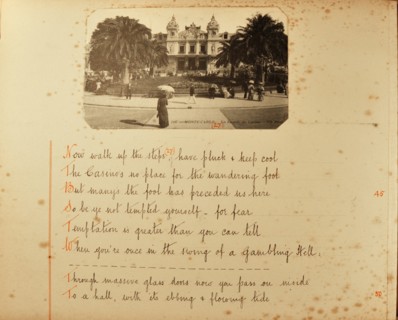 (23)
Now walk up the steps (25) have pluck & keep cool
The Casino's no place for the wandering fool
But many's the fool has preceded us here 45
So be ye not tempted yourself - for fear
Temptation is greater than you can tell
When you're once in the swing of a Gambling Hell.
Through massive glass doors now you pass on inside
To a hall, with its ebbing & flowing tide 50